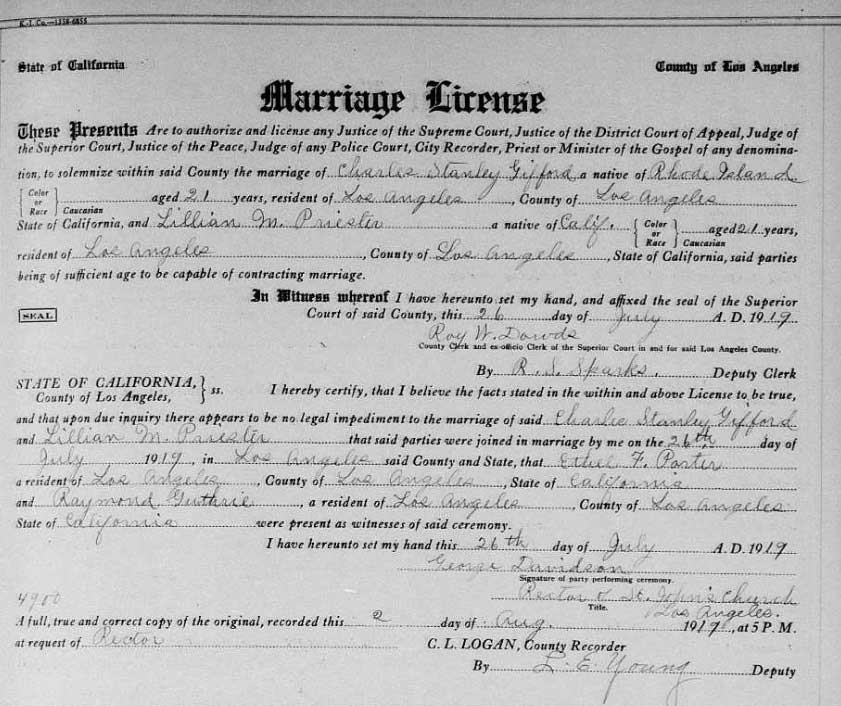 K-I. Co.—1358-6855
State of California County of Los Angeles
Marriage License
These Presents Are to authorize and license any Justice of the Supreme Court, Justice of the District Court of Appeal, Judge of
the Superior Court, Justice of the Peace, Judge of any Police Court, City Recorder, Priest or Minister of the Gospel of any denomina-
tion, to solemnize within said County the marriage of Charles Stanley Gifford a native of Rhode Island
Color or Race Caucasian aged 21 years, resident of Los Angeles, County of Los Angeles
State of California, and Lillian M. Priester a native of Calif. Color or Race Caucasian aged 21 years,
resident of Los Angeles, County of Los Angeles, State of California, said parties
being of sufficient age to be capable of contracting marriage.
In Witness whereof I have hereunto set my hand, and affixed the seal of the Superior
SEAL Court of said County, this 26 day of July A. D. 1919
Roy W. Dowds
County Clerk and ex-officio Clerk of the Superior Court in and for said Los Angeles County.
By R. S. Sparks. Deputy Clerk
STATE OF CALIFORNIA,
County of Los Angeles, } ss. I hereby certify, that I believe the facts stated in the within and above License to be true,
and that upon due inquiry there appears to be no legal impediment to the marriage of said Charlie Stanley Gifford
and Lillian M. Priester that said parties were joined in marriage by me on the 26th day of
July 1919, in Los Angeles said County and State, that Ethel F. Porter
a resident of Los Angeles, County of Los Angeles, State of California
and Raymond Guthrie, a resident of Los Angeles, County of Los Angeles
State of California were present as witnesses of said ceremony.
I have hereunto set my hand this 26th day of July A. D. 1919
George Davidson
Signature of party performing ceremony.
Rector of St. John's Church
Title. Los Angeles.
4900
A full, true and correct copy of the original, recorded this 2 day of Aug. 1919, at 5 P. M.
at request of Rector C. L. LOGAN, County Recorder
By L. E. Young Deputy